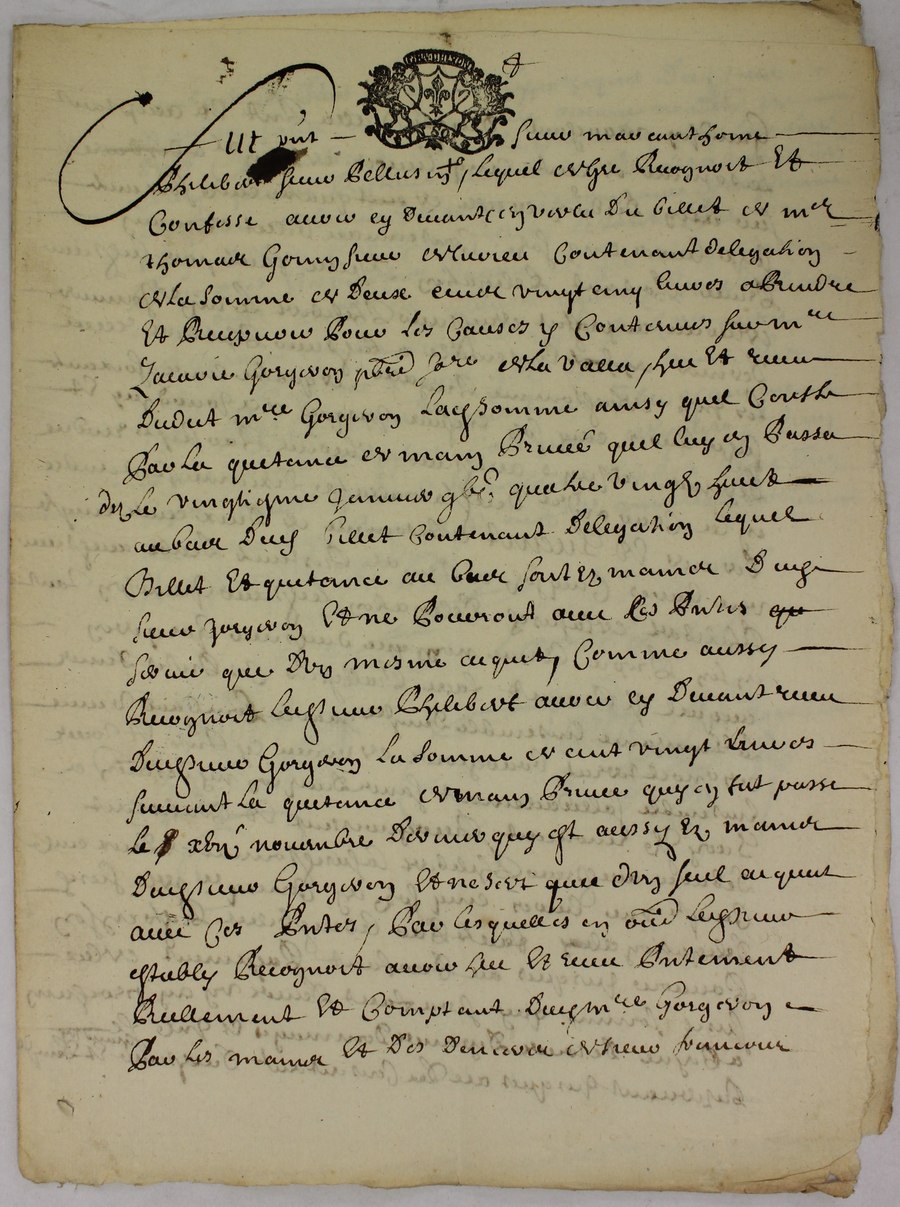 Fut pnt sieur marcant home
Philebert sieur Pellussin, lequel de gre Recognoit Et
Confesse avoir cy Devant en vertu Du billet de mre
thomas Gonin sieur de contenant delegation
de la somme de Deux cens vingt cinq livres a Prendre
Et Recepvoir Pour les causes y Contenues sur mre
Zacarie Gorgeron de la valla, heu Et receu
Dudict mre Gorgeron lad somme ainsy quel Conste
Par la quitance de main Privée quel luy en Passa
le vingtiesme Janvier quatre vingts huict
au bas Dud billet Contenant Delegation lequel
Billet Et quitance au bas sont ez mains Dud
sieur Gorgeron Et ne Pouront avec les Pntes
servir que Dun mesme acquit, Comme aussy
Recognoit led sieur Philebert avoir cy Devant receu
Dud sieur Gorgeron La somme de cent vingt livres
suivant la quitance de main Privée quy en fut passé
le novembre Dernier quy est aussy ez mains
Dud sieur Gorgeron Et ne sert que dun seul acquit
avec Ces Pntes, Par lesquelles led sieur
estably Recognoit avoir heu Et receu Pntement
Reellement Et Comptant Dud mre Gorgeron
Par les mains Et Des Deniers de sieur francois